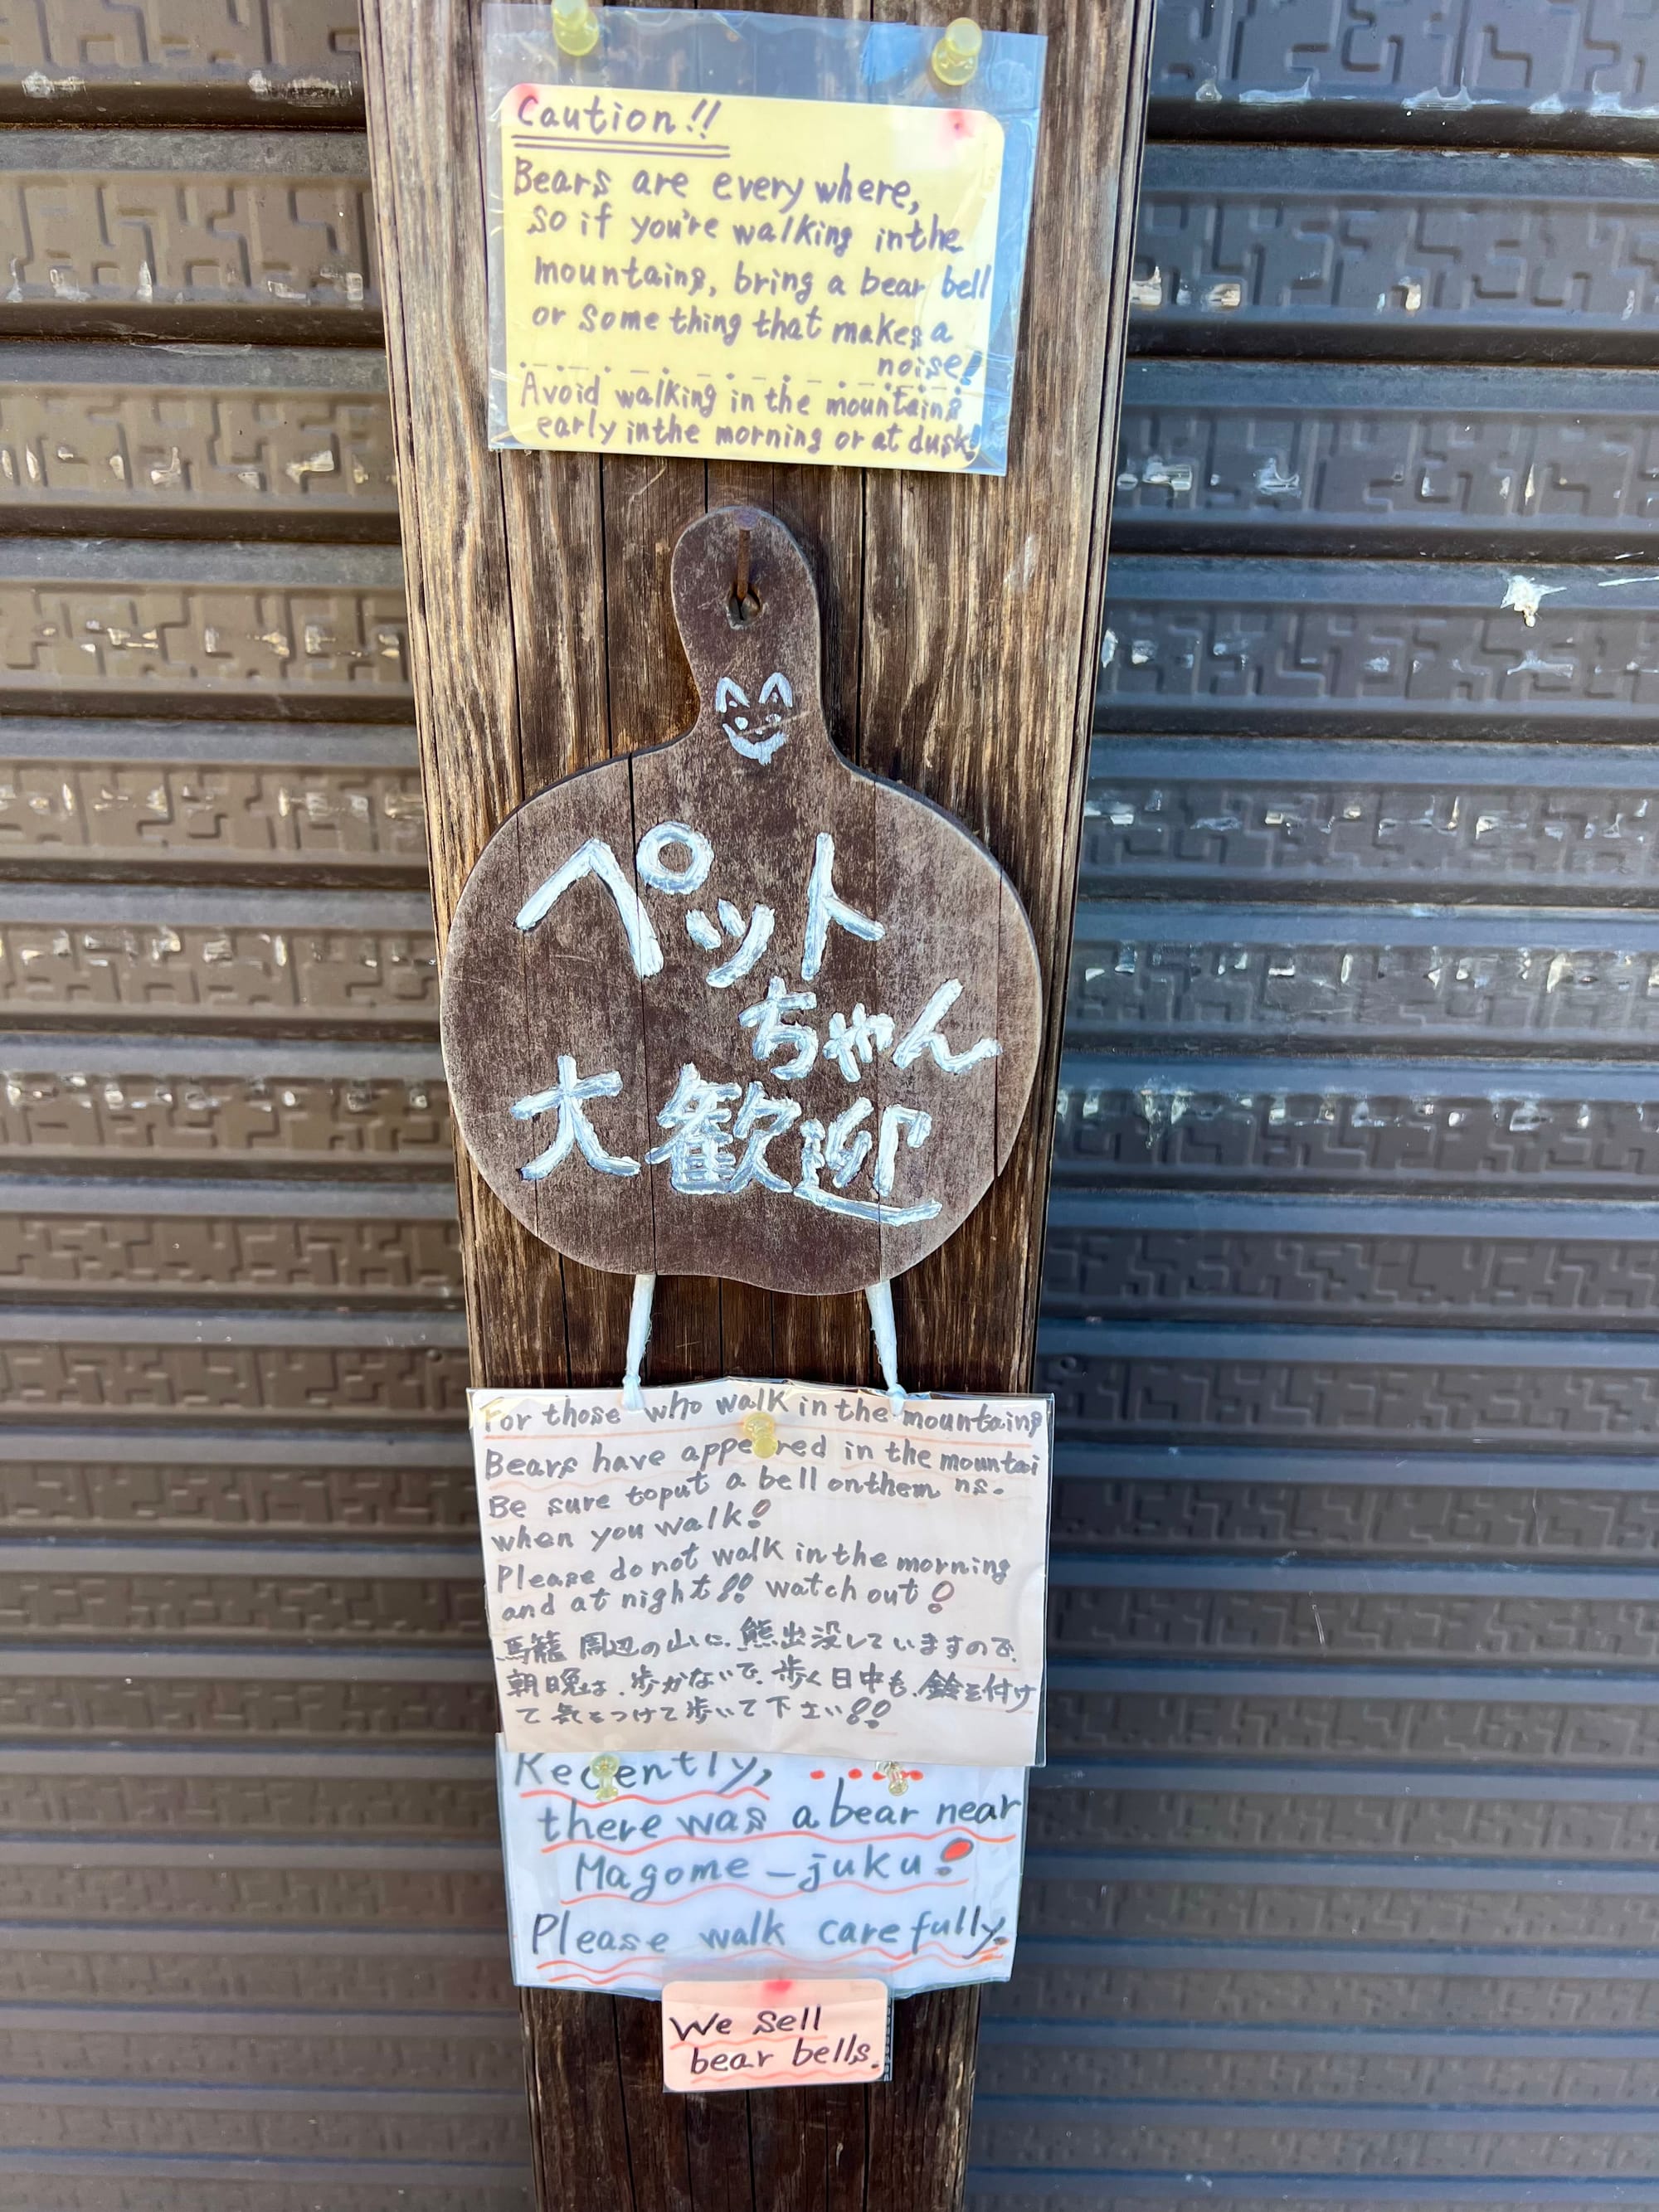 Caution!!
Bears are everywhere,
so if you're walking in the
mountains, bring a bear bell
or something that makes a
noise!
Avoid walking in the mountains
early in the morning or at dusk!
ペット
ちゃん
大歓迎
For those who walk in the mountains
Bears have appeared in the mountai
ns.
Be sure to put a bell on them
when you walk!
Please do not walk in the morning
and at night!! watch out!
馬籠周辺の山に、熊出没していますので、
朝晩は、歩かないで、歩く日中も、鈴を付け
て気をつけて歩いて下さい!!
Recently,
there was a bear near
Magome-juku!
Please walk carefully.
We sell
bear bells.